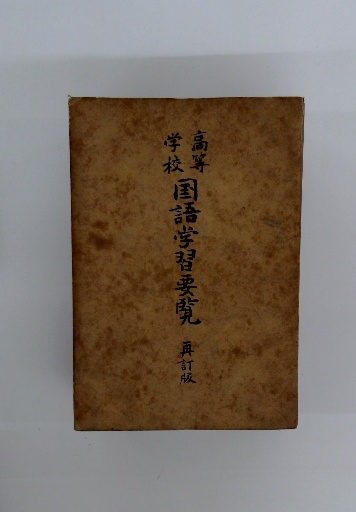 高等
学校
国語学習要覧
再訂版